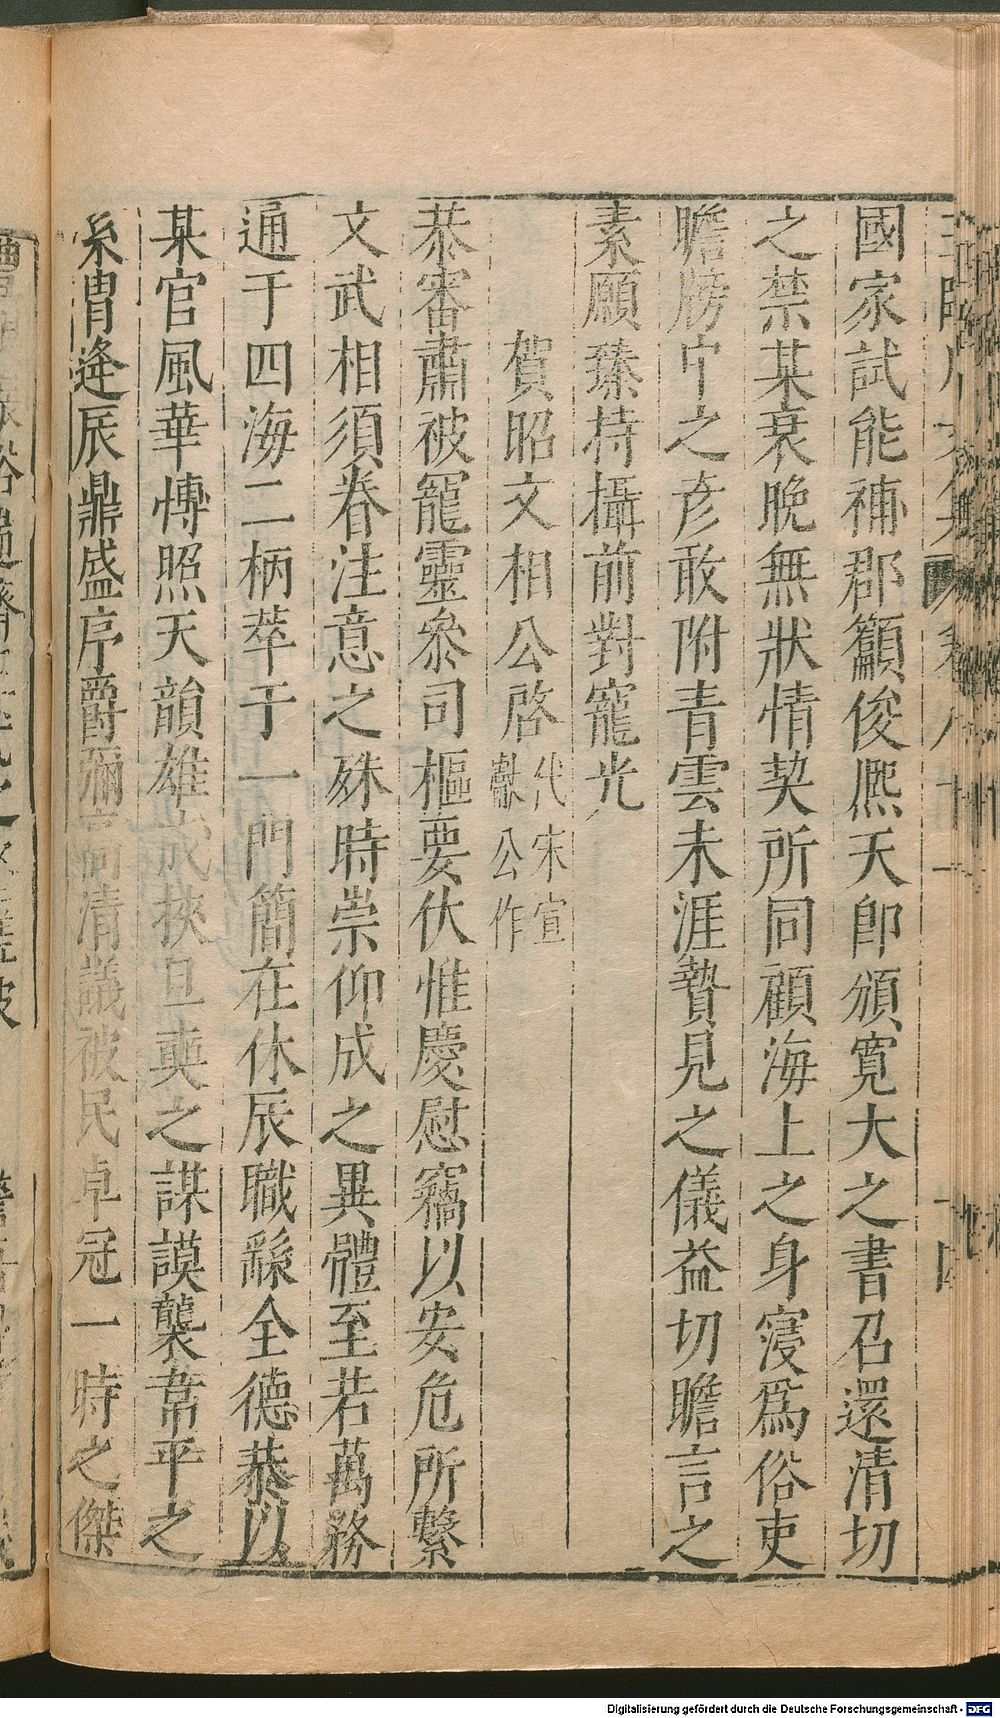 國家試能補郡籲俊熈天郎頒寛大之書召還清切
之禁某衰晚無狀情契所同顧海上之身寖爲俗吏
瞻牓中之彦敢附青雲未涯贄見之儀益切瞻言之
素願臻持攝前對寵光
賀昭文相公啓代宋宣獻公作
恭審肅被寵靈叅司樞要伏惟慶慰竊以安危所繫
文武相須眷注意之殊時崇仰成之異體至若萬務
通于四海二柄萃于一門簡在休辰職繇全德恭以
某官風華愽照天韻雄成挾旦奭之謀謨襲韋平之
系胄逢辰鼎盛序爵彌高清議被民卓冠一時之傑
Digitalisierung gefördert durch die Deutsche Forschungsgemeinschaft - DFG